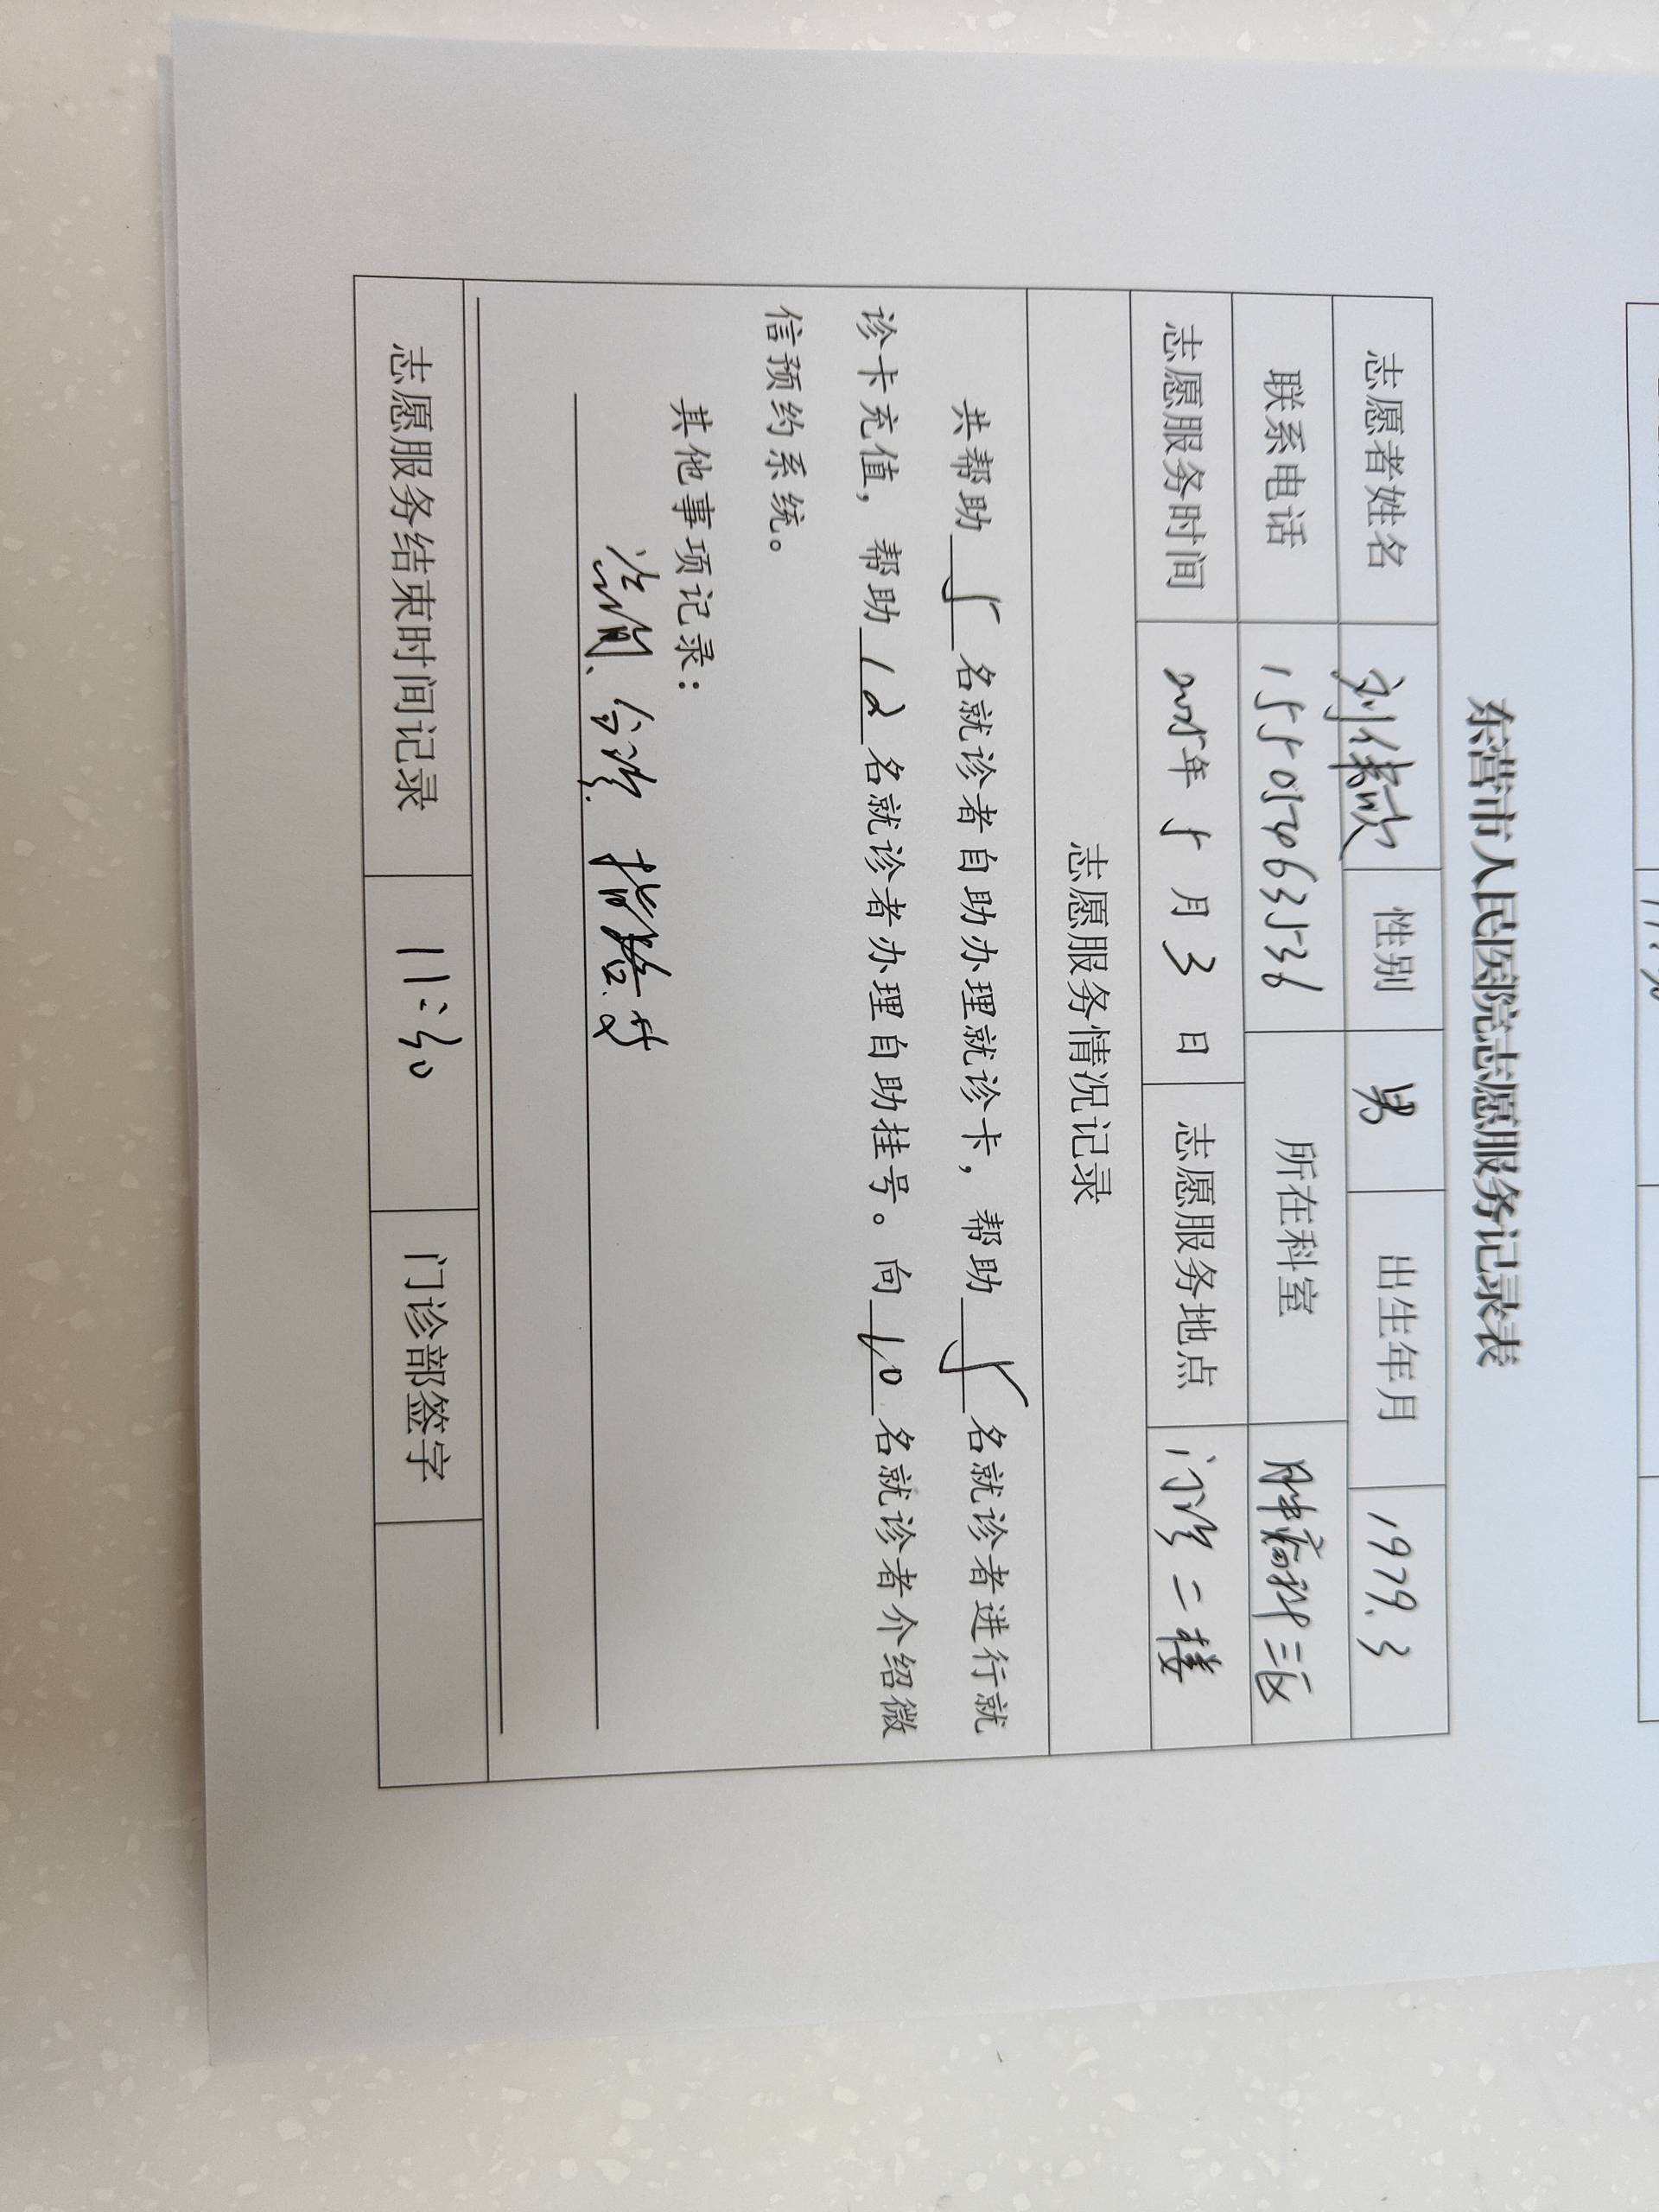 东营市人民医院志愿服务记录表
志愿者姓名 刘 性别 男 出生年月 1979.3
联系电话 15505463536 所在科室 肿瘤科三区
志愿服务时间 2025年 5 月 3 日 志愿服务地点 门诊二楼
志愿服务情况记录
共帮助 5 名就诊者自助办理就诊卡，帮助 5 名就诊者进行就
诊卡充值，帮助 12 名就诊者办理自助挂号。向 10 名就诊者介绍微
信预约系统。
其他事项记录：
咨询、分诊、指路
志愿服务结束时间记录 11:30 门诊部签字